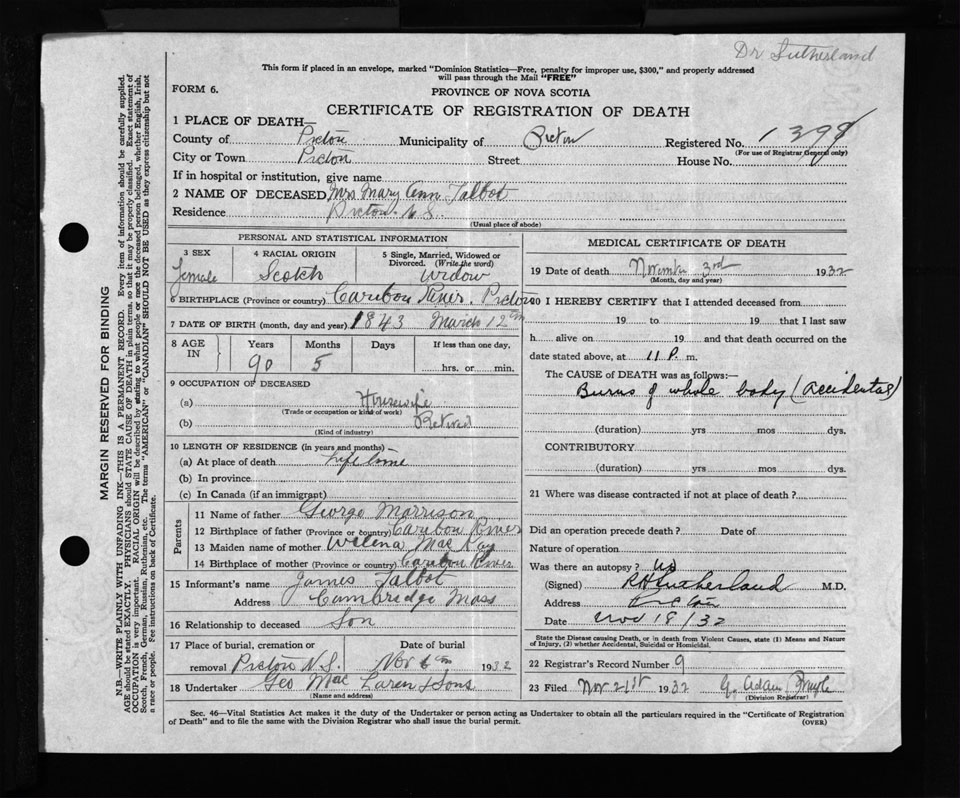 Dr Sutherland
This form if placed in an envelope, marked "Dominion Statistics—Free, penalty for improper use, $300," and properly addressed
will pass through the Mail "FREE"
FORM 6.
PROVINCE OF NOVA SCOTIA
CERTIFICATE OF REGISTRATION OF DEATH
1 PLACE OF DEATH—
County of Pictou Municipality of Pictou Registered No. 1398
(For use of Registrar General only)
City or Town Pictou Street House No.
If in hospital or institution, give name
2 NAME OF DECEASED Mrs Mary Ann Talbot
Residence Pictou N.S.
(Usual place of abode)
PERSONAL AND STATISTICAL INFORMATION
3 SEX 4 RACIAL ORIGIN 5 Single, Married, Widowed or Divorced. (Write the word)
Female Scotch Widow
6 BIRTHPLACE (Province or country) Caribou River, Pictou
7 DATE OF BIRTH (month, day and year) 1843 March 12th
8 AGE IN Years Months Days If less than one day,
90 5 hrs. or min.
9 OCCUPATION OF DECEASED
(a) Housewife
(Trade or occupation or kind of work)
(b) Retired
(Kind of industry)
10 LENGTH OF RESIDENCE (in years and months)
(a) At place of death Life time
(b) In province
(c) In Canada (if an immigrant)
Parents
11 Name of father George Morrison
12 Birthplace of father (Province or country) Caribou River
13 Maiden name of mother Welena MacKay
14 Birthplace of mother (Province or country) Caribou River
15 Informant's name James Talbot
Address Cambridge Mass
16 Relationship to deceased Son
17 Place of burial, cremation or removal Date of burial
Pictou N.S. Nov 6th 1932
18 Undertaker Geo MacLaren & Sons
(Name and address)
MEDICAL CERTIFICATE OF DEATH
19 Date of death November 3rd 1932
(Month, day and year)
20 I HEREBY CERTIFY that I attended deceased from
19 to 19 that I last saw
h alive on 19 and that death occurred on the
date stated above, at 11 P. m.
The CAUSE OF DEATH was as follows:—
Burns of whole body (accidental)
(duration) yrs mos dys.
CONTRIBUTORY
(duration) yrs mos dys.
21 Where was disease contracted if not at place of death?
Did an operation precede death? Date of
Nature of operation
Was there an autopsy? no
(Signed) R H Sutherland M.D.
Address Pictou
Date Nov 18/32
State the Disease causing Death, or in death from Violent Causes, state (1) Means and Nature
of Injury, (2) whether Accidental, Suicidal or Homicidal.
22 Registrar's Record Number 9
23 Filed Nov 21st 1932 G. Adam
(Division Registrar)
Sec. 46—Vital Statistics Act makes it the duty of the Undertaker or person acting as Undertaker to obtain all the particulars required in the "Certificate of Registration
of Death" and to file the same with the Division Registrar who shall issue the burial permit. (OVER)
MARGIN RESERVED FOR BINDING
N.B.—WRITE PLAINLY WITH UNFADING INK—THIS IS A PERMANENT RECORD. Every item of information should be carefully supplied.
AGE should be stated EXACTLY. PHYSICIANS should STATE CAUSE OF DEATH in plain terms, so that it may be properly classified. Exact statement of
OCCUPATION is very important. RACIAL ORIGIN will be described by stating to what people or race the deceased person belonged, whether English, Irish,
Scotch, French, German, Russian, Ruthenian, etc. The terms "AMERICAN" or "CANADIAN" SHOULD NOT BE USED as they express citizenship but not
a race or people. See instructions on back of Certificate.